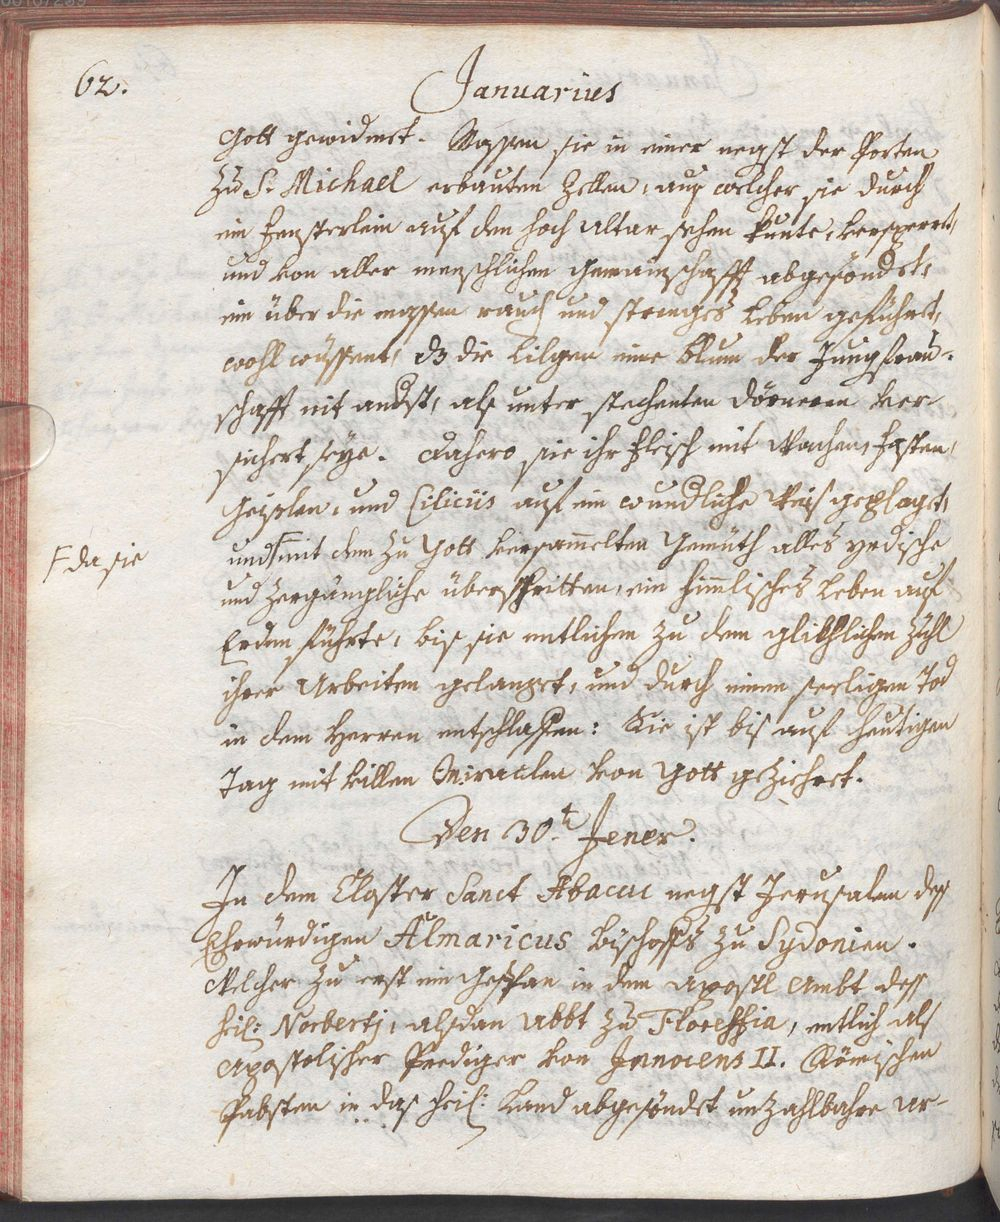 62.
Januarius
Gott gewidmet. Massen sie in einer negst der Porten
zu S. Michael erbauten Zellen, aus welcher sie durch
ein fensterlein auf den hoch Altar sehen kunte, versperret,
und von aller menschlichen gemainschafft abgesöndret,
ein über die massen rauch und strenges leben geführet,
wohl wüssent, dz die Lilgen eine blum der Jungfrau-
schafft nit andst, als unter stechenten dörneren ver
sichert seye. Dahero sie ihr fleisch mit Wachen, fasten,
Geislen, und Ciliciis auf ein wundliche weis geplaget,
und mit dem zu Gott versammelten Gemüth alles yrdische
F da sie
und zergängliche überschritten, ein himmlisches leben auf
Erden führte, bis sie entlichen zu dem glikhlichen zihl
ihrer Arbeiten gelanget, und durch einen seeligen Tod
in dem Herren entschlaffen: Sie ist bis auf heutigen
Tag mit villen Miraclen von Gott geziehret.
Den 30.t Jener.
In dem Closter Sanct Abacuc negst Jerusalem dess
Ehrwürdigen Almaricus Bischoffs zu Sydonien.
Welcher zu erst ein Gespan in dem Apostl Ambt dess
heil: Norbertj, alsdan Abbt zu Floreffia, entlich als
Apostolischer Prediger von Innocens II. Römischen
Pabsten in das heil: Land abgesöndet unzahlbahre ur-